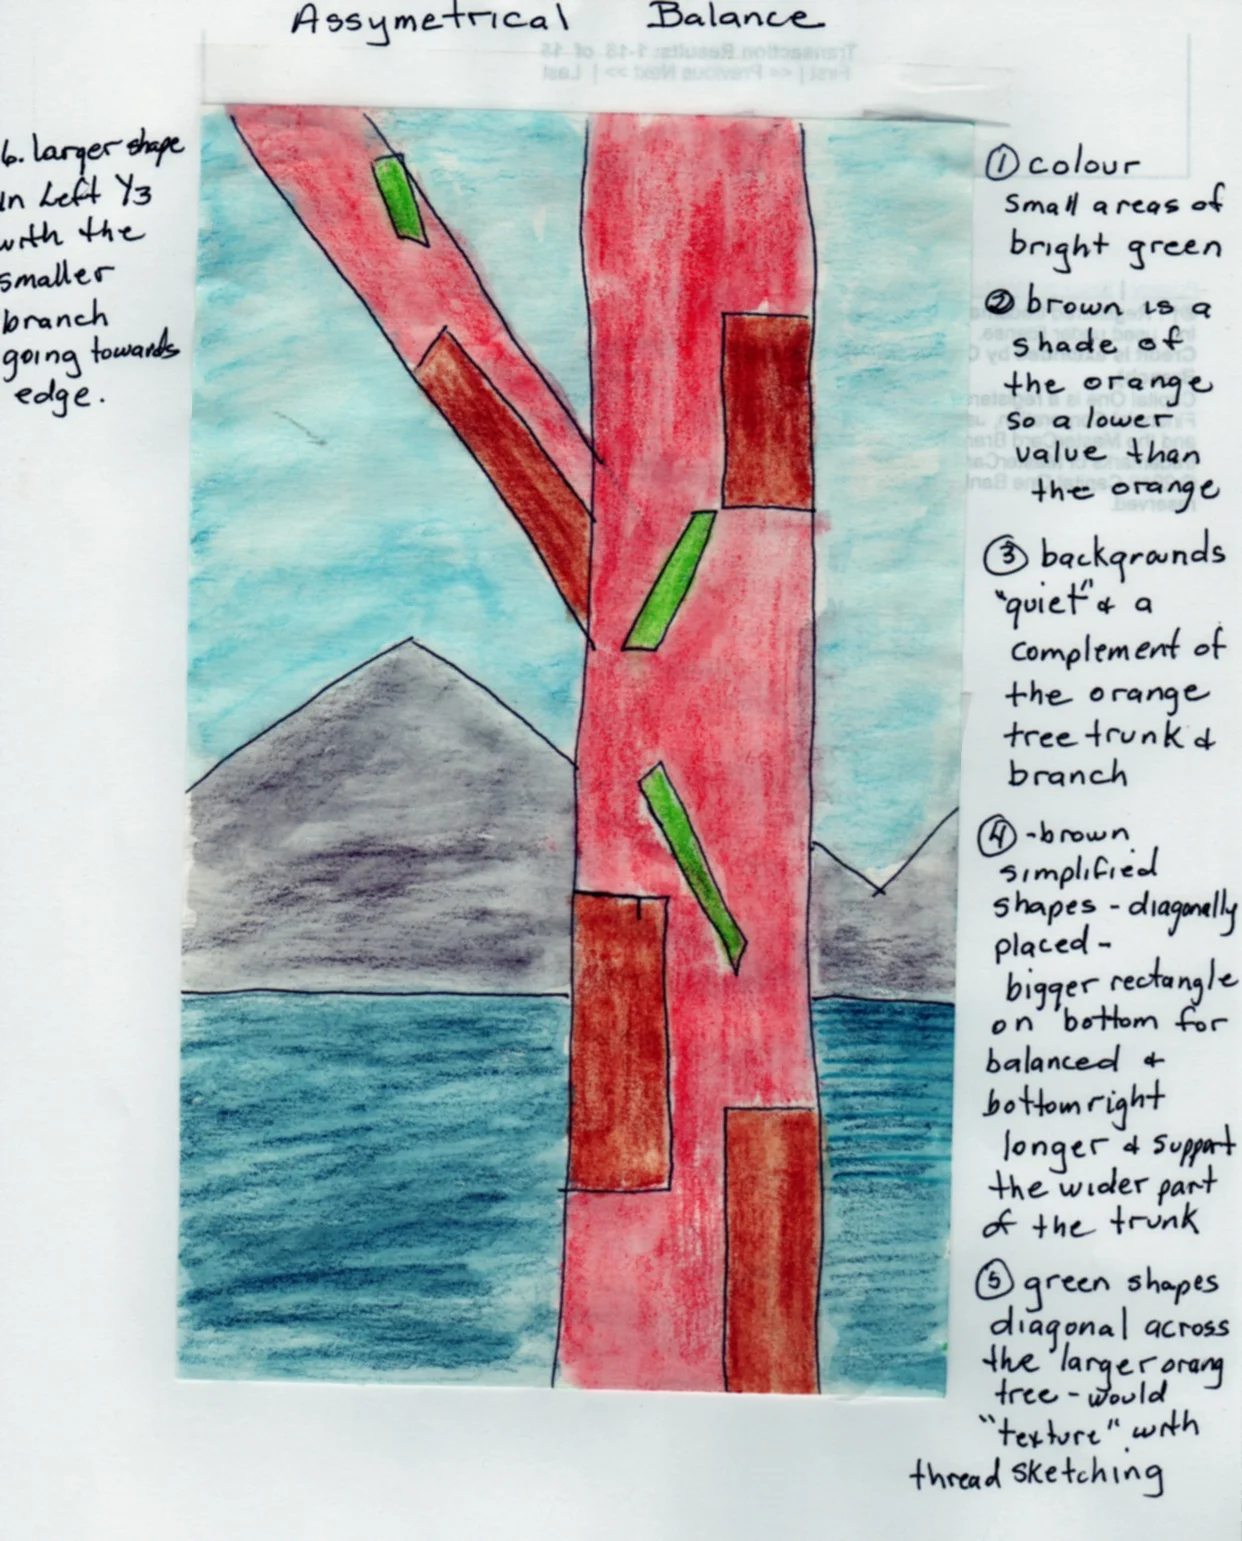 Assymetrical Balance
6. larger shape
in Left 1/3
with the
smaller
branch
going towards
edge.
① colour
small areas of
bright green
② brown is a
shade of
the orange
so a lower
value than
the orange
③ backgrounds
"quiet" & a
complement of
the orange
tree trunk &
branch
④ -brown
simplified
shapes - diagonally
placed -
bigger rectangle
on bottom for
balanced &
bottom right
longer & support
the wider part
of the trunk
⑤ green shapes
diagonal across
the larger orang
tree - would
"texture" with
thread sketching
Transaction Results: 1-15 of 15
First | << Previous Next >> | Last